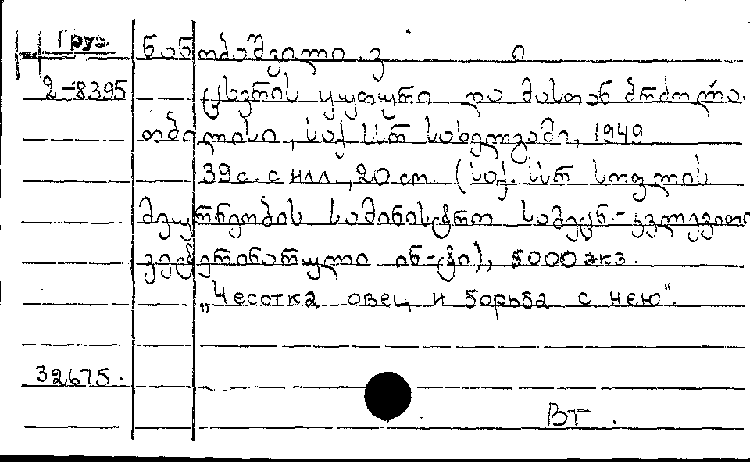 Груз.
ნანობაშვილი ვ.
2-8395 ცხვრის ყუთური და მასთან ბრძოლა.
თბილისი, საქ სსრ სახელგამი, 1949
39 с. с илл., 20 см. (საქ. სსრ სოფლის
მეურნეობის სამინისტრო სამეცნ.-კვლევითი
ვეტერინარული ინ-ტი), 5000 экз.
„Чесотка овец и борьба с нею".
32675.
ВТ.